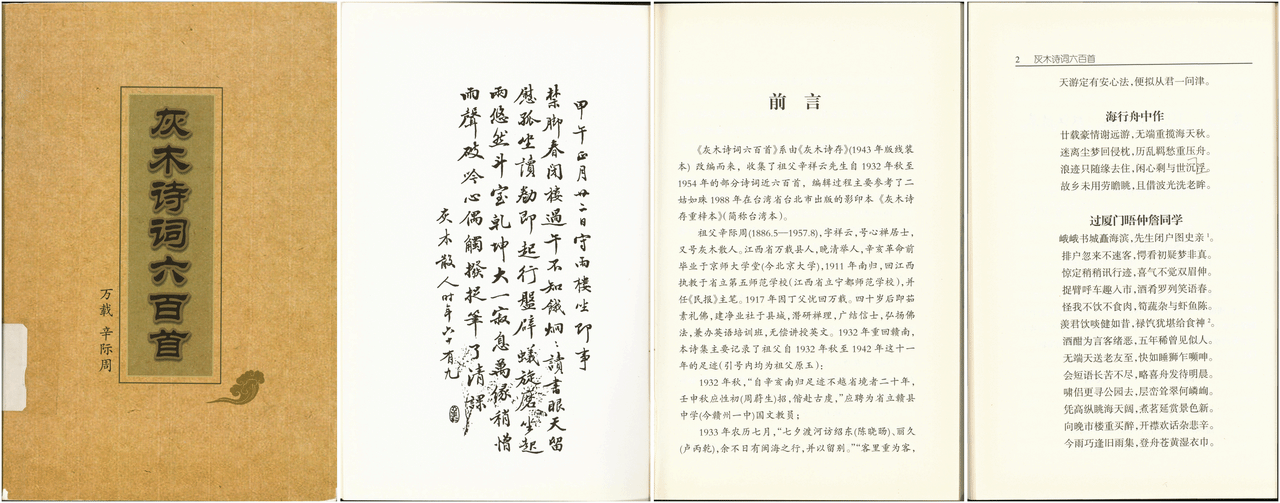 灰木诗词六百首
万载 辛际周
甲午正月廿二日守雨楼坐即事
禁脚春闭楼過午不知餓炯:讀書眼天留
慰孤坐讀勌即起行盤辟蟻旋磨坐起
雨悠然斗室乾坤大一寂息萬緣稍憎
雨聲破吟心偶觸撥捉筆了清課
灰木散人时年六十有九
前言
《灰木诗词六百首》系由《灰木诗存》(1943年版线装
本) 改编而来，收集了祖父辛祥云先生自1932年秋至
1954年的部分诗词近六百首，编辑过程主要参考了二
姑如珠1988年在台湾省台北市出版的影印本《灰木诗
存重梓本》(简称台湾本)。
祖父辛际周(1886.5—1957.8)，字祥云，号心禅居士，
又号灰木散人。江西省万载县人，晚清举人，辛亥革命前
毕业于京师大学堂(今北京大学)，1911年南归，回江西
执教于省立第五师范学校(江西省立宁都师范学校)，并
任《民报》主笔。1917年因丁父忧回万载。四十岁后即茹
素礼佛，建净业社于县城，潜研禅理，广结信士，弘扬佛
法，兼办英语培训班，无偿讲授英文。1932年重回赣南，
本诗集主要记录了祖父自1932年秋至1942年这十一
年的足迹(引号内均为祖父原玉)：
1932年秋，“自辛亥南归足迹不越省境者二十年，
壬申秋应性初(周蔚生)招，偕赴古虔，”应聘为省立赣县
中学(今赣州一中)国文教员；
1933年农历七月，“七夕渡河访绍东(陈晓旸)、丽久
(卢丙乾)，余不日有闽海之行，并以留别。”“客里重为客，
2 灰木诗词六百首
天游定有安心法，便拟从君一问津。
海行舟中作
廿载豪情谢远游，无端重揽海天秋。
迷离尘梦回侵枕，历乱羁愁重压舟。
浪迹只随缘去住，闲心剩与世沉浮。
故乡未用劳瞻眺，且借波光洗老眸。
过厦门晤仲詹同学
峨峨书城矗海滨，先生闭户图史亲1。
排户忽来不速客，愕看初疑梦非真。
惊定稍稍讯行迹，喜气不觉双眉伸。
捉臂呼车趣入市，酒肴罗列笑语春。
怪我不饮不食肉，筍蔬杂与虾鱼陈。
羡君饮啖健如昔，禄忾犹堪给食神2。
酒酣为言客绪恶，五年稀曾见似人。
无端天送老友至，快如睡狮乍嚬呻。
会短语长苦不尽，略喜舟发待明晨。
啸侣更寻公园去，层峦耸翠何嶙峋。
凭高纵眺海天阔，煮茗延赏景色新。
向晚市楼重买醉，开襟欢话杂悲辛。
今雨巧逢旧雨集，登舟苍黄湿衣巾。